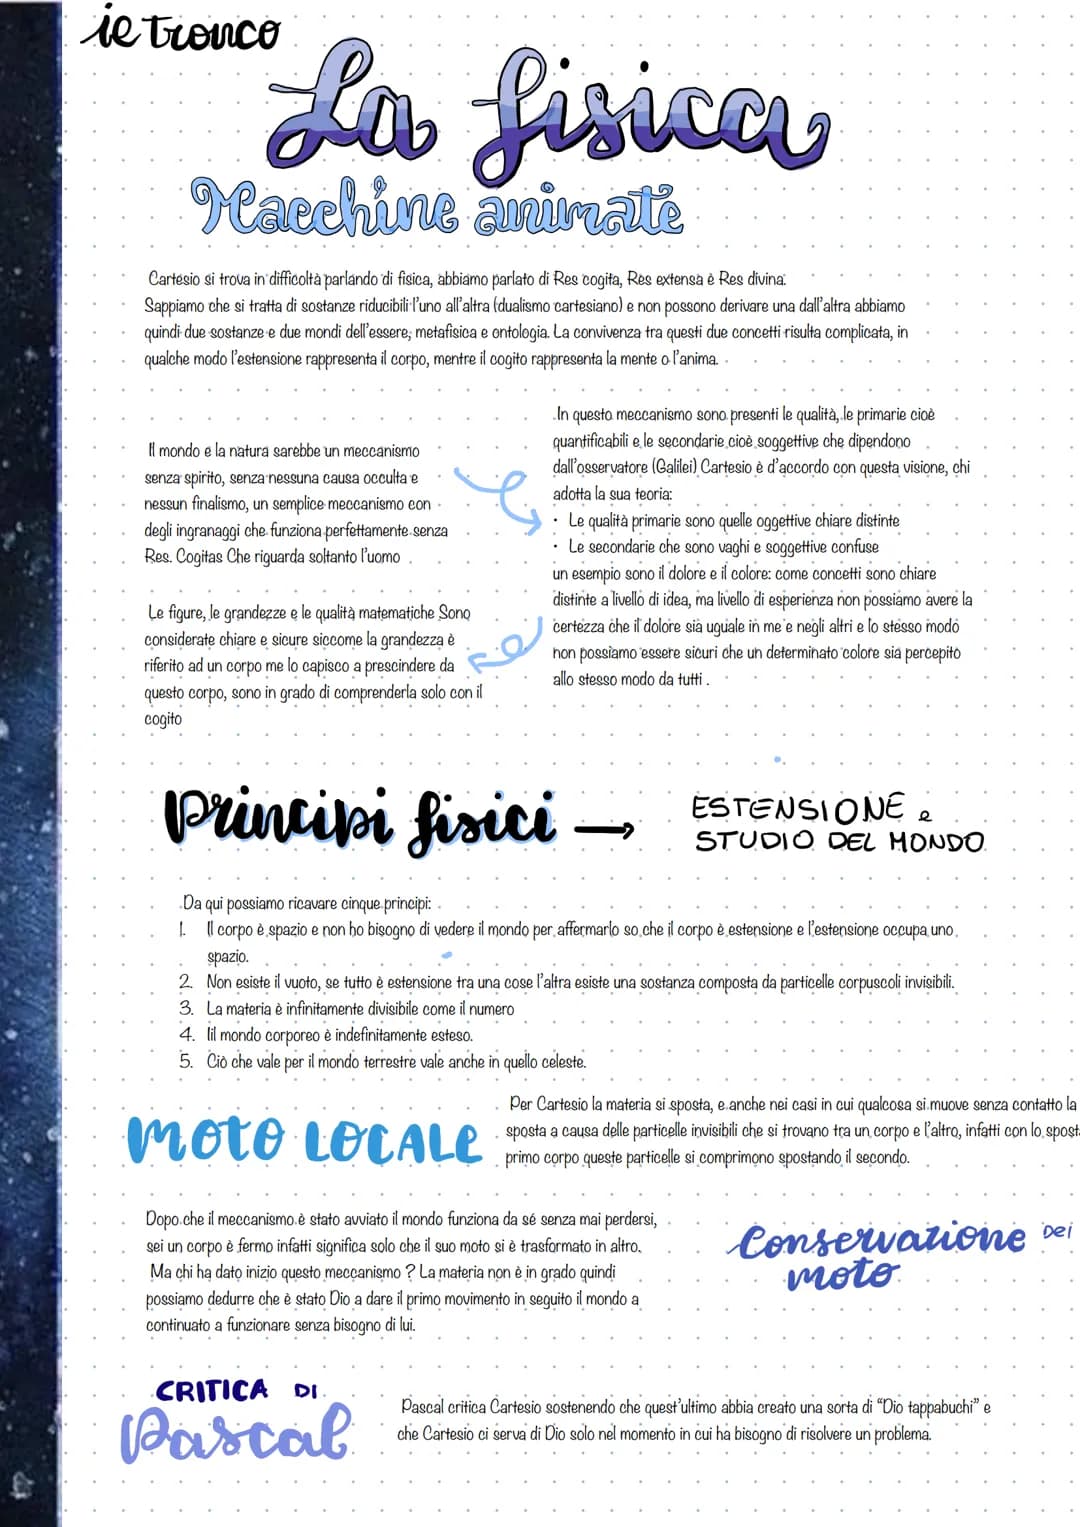 ie tronco
La fisica
Macchine animate
Cartesio si trova in difficoltà parlando di fisica, abbiamo parlato di Res cogita, Res extensa è Res divina.
Sappiamo che si tratta di sostanze riducibili l'uno all'altra (dualismo cartesiano) e non possono derivare una dall'altra abbiamo
quindi due sostanze e due mondi dell'essere; metafisica e ontologia. La convivenza tra questi due concetti risulta complicata, in
qualche modo l'estensione rappresenta il corpo, mentre il cogito rappresenta la mente o l'anima.
Il mondo e la natura sarebbe un meccanismo
senza spirito, senza nessuna causa occulta e
nessun finalismo, un semplice meccanismo con
degli ingranaggi che funziona perfettamente senza
Res. Cogitas Che riguarda soltanto l'uomo
In questo meccanismo sono presenti le qualità, le primarie cioè
quantificabili e le secondarie cioè soggettive che dipendono
dall'osservatore (Galilei) Cartesio è d'accordo con questa visione, chi
adotta la sua teoria:
• Le qualità primarie sono quelle oggettive chiare distinte
• Le secondarie che sono vaghi e soggettive confuse
un esempio sono il dolore e il colore: come concetti sono chiare
distinte a livello di idea, ma livello di esperienza non possiamo avere la
certezza che il dolore sia uguale in me e negli altri e lo stesso modo
non possiamo essere sicuri che un determinato colore sia percepito
allo stesso modo da tutti .
Le figure, le grandezze e le qualità matematiche Sono
considerate chiare e sicure siccome la grandezza è
riferito ad un corpo me lo capisco a prescindere da
questo corpo, sono in grado di comprenderla solo con il
cogito
Principi fisici → ESTENSIONE e
STUDIO DEL MONDO
Da qui possiamo ricavare cinque principi:
1. Il corpo è spazio e non ho bisogno di vedere il mondo per affermarlo so che il corpo è estensione e l'estensione occupa uno
spazio.
2. Non esiste il vuoto, se tutto è estensione tra una cose l'altra esiste una sostanza composta da particelle corpuscoli invisibili.
3. La materia è infinitamente divisibile come il numero
4. Iil mondo corporeo è indefinitamente esteso.
5. Ciò che vale per il mondo terrestre vale anche in quello celeste.
MOTO LOCALE
Per Cartesio la materia si sposta, e anche nei casi in cui qualcosa si muove senza contatto la
sposta a causa delle particelle invisibili che si trovano tra un corpo e l'altro, infatti con lo spost
primo corpo queste particelle si comprimono spostando il secondo.
Dopo che il meccanismo è stato avviato il mondo funziona da sé senza mai perdersi,
sei un corpo è fermo infatti significa solo che il suo moto si è trasformato in altro.
Ma chi ha dato inizio questo meccanismo ? La materia non è in grado quindi
possiamo dedurre che è stato Dio a dare il primo movimento in seguito il mondo a
continuato a funzionare senza bisogno di lui.
Conservazione Dei
moto
CRITICA DI
Pascal
Pascal critica Cartesio sostenendo che quest'ultimo abbia creato una sorta di "Dio tappabuchi" e
che Cartesio ci serva di Dio solo nel momento in cui ha bisogno di risolvere un problema.